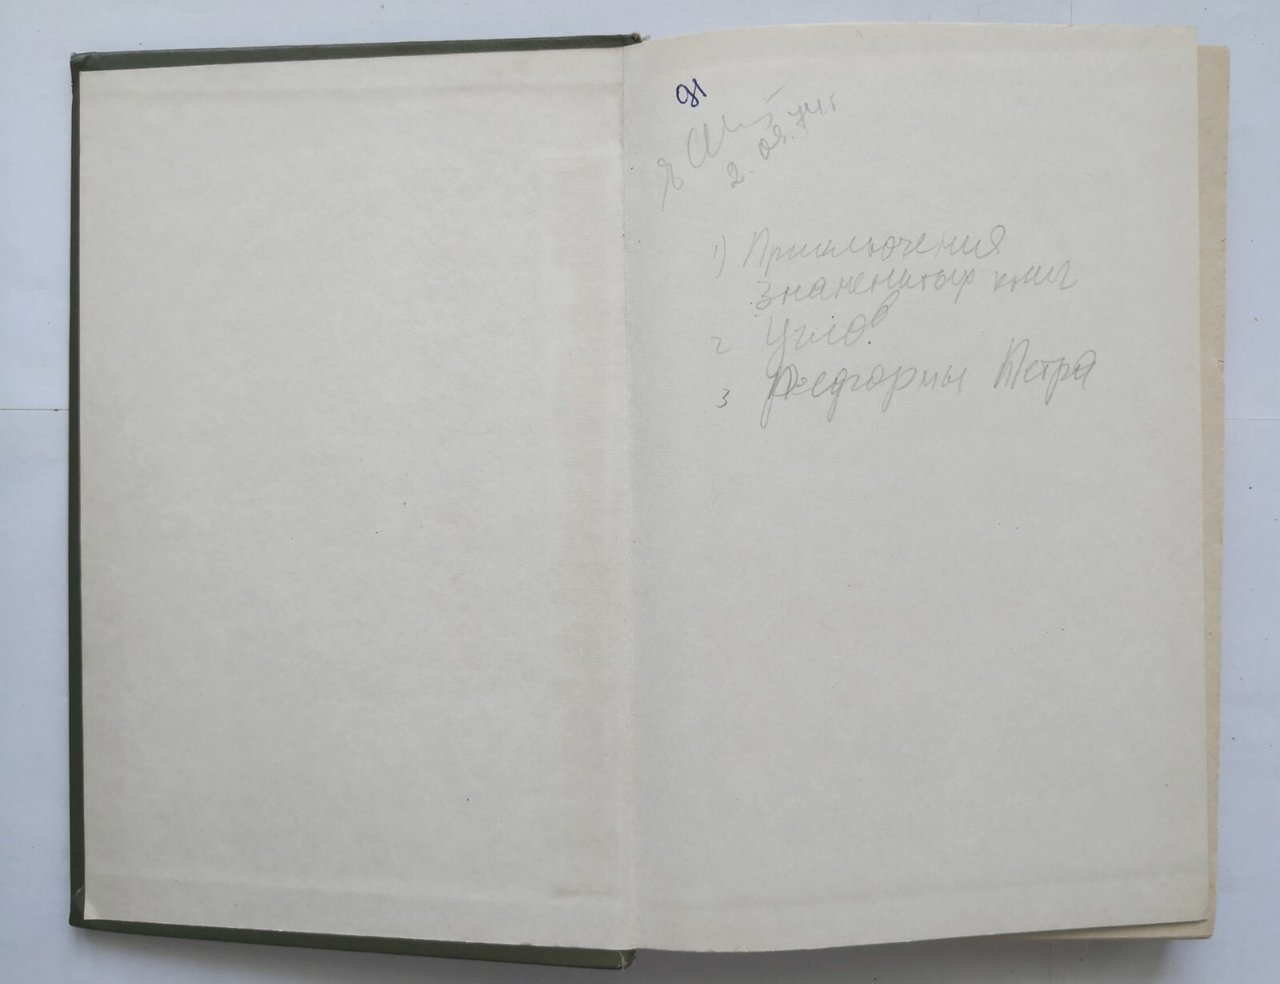 91
2.09.74г
1) Приключения
знаменитых книг
2 Углов
3 Реформы Петра